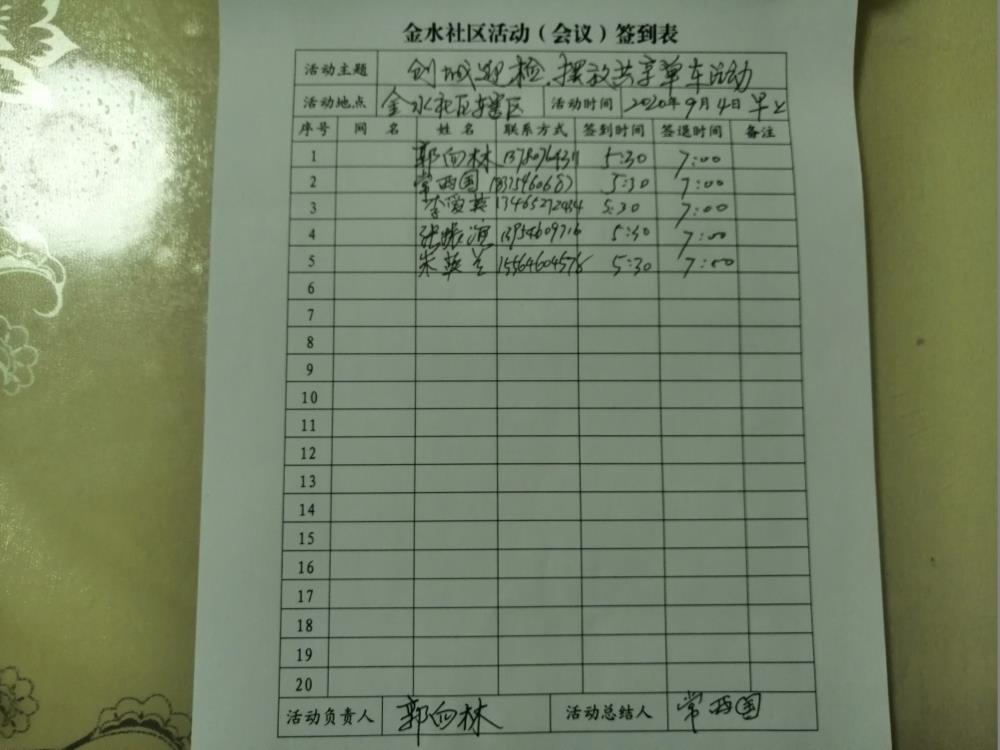 金水社区活动（会议）签到表
活动主题 创城迎检.摆放共享单车活动
活动地点 金水社区辖区 活动时间 2020年9月4日 早上
序号 网 名 姓 名 联系方式 签到时间 签退时间 备注
1 郭向林 5:30 7:00
2 常西国 5:30 7:00
3 李爱英 5:30 7:00
4 5:30 7:00
5 朱英兰 15564604576 5:30 7:00
6
7
8
9
10
11
12
13
14
15
16
17
18
19
20
活动负责人 郭向林 活动总结人 常西国